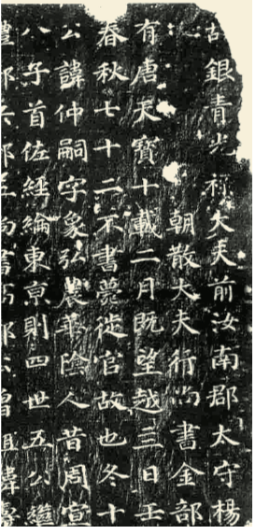 故銀青光祿大夫前汝南郡太守楊
朝散大夫行尚書金部
有唐天寶十載二月既望越三日壬
春秋七十二不書薨徙官故也冬十
公諱仲嗣字象弘農華陰人昔周宣
八子首佐經綸東京則四世五公
部兵部尚書公曾祖諱